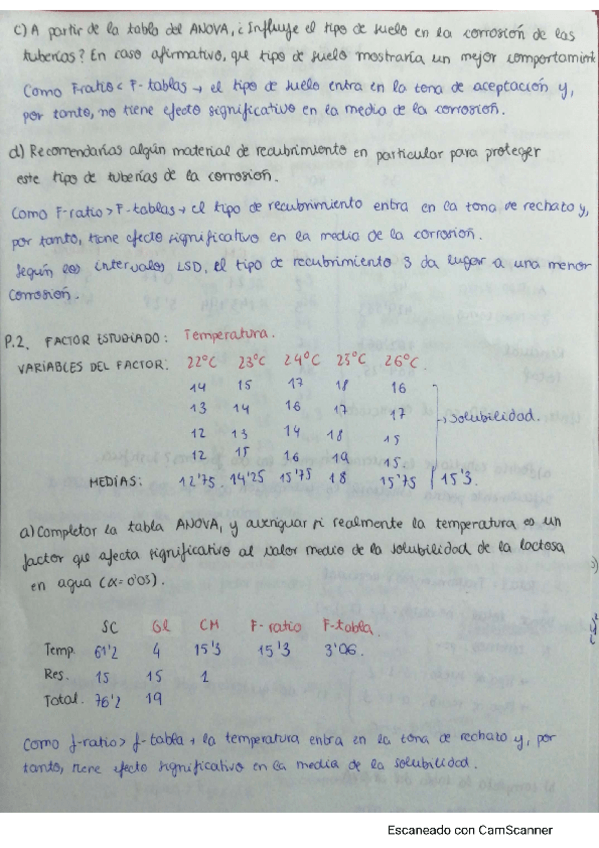 c) A partir de la tabla del ANOVA, ¿Influye el tipo de suelo en la corrosión de las
tuberías? En caso afirmativo, que tipo de suelo mostraría un mejor comportamient
Como F-ratio < F-tablas → el tipo de suelo entra en la zona de aceptación y,
por tanto, no tiene efecto significativo en la media de la corrosión.
d) Recomendarías algún material de recubrimiento en particular para proteger
este tipo de tuberías de la corrosión.
Como F-ratio > F-tablas → el tipo de recubrimiento entra en la zona de rechazo y,
por tanto, tiene efecto significativo en la media de la corrosión.
Según los intervalos LSD, el tipo de recubrimiento 3 da lugar a una menor
corrosión.
P.2. FACTOR ESTUDIADO: Temperatura.
VARIABLES DEL FACTOR: 22°C 23°C 24°C 25°C 26°C
14 15 17 18 16
13 14 16 17 17 → solubilidad.
12 13 14 18 15
12 15 16 19 15.
MEDIAS: 12'75 14'25 15'75 18 15'75 15'3.
a) Completar la tabla ANOVA, y averiguar si realmente la temperatura es un
factor que afecta significativo al valor medio de la solubilidad de la lactosa
en agua (α=0'05).
SC Gl CM F-ratio F-tabla
Temp. 61'2 4 15'3 15'3 3'06.
Res. 15 15 1
Total. 76'2 19
Como f-ratio > f-tabla → la temperatura entra en la zona de rechazo y, por
tanto, tiene efecto significativo en la media de la solubilidad.
Escaneado con CamScanner